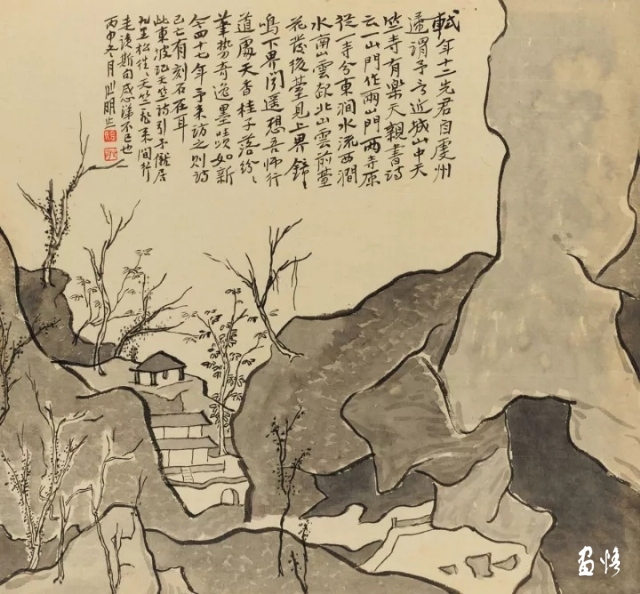 軾年十二先君自虔州
歸謂予言近城山中天
竺寺有樂天親書詩
云一山門作兩山門兩寺原
從一寺分東澗水流西澗
水南山雲起北山雲前臺
花發後臺見上界鐘
鳴下界聞遥想吾師行
道處天香桂子落紛紛
筆勢奇逸墨跡如新
今四十七年予來訪之則詩
已亡有刻石在耳
此東坡記天竺詩引予僦居
松往天竺飛來間行
走讀斯句感涕不已也
丙申月